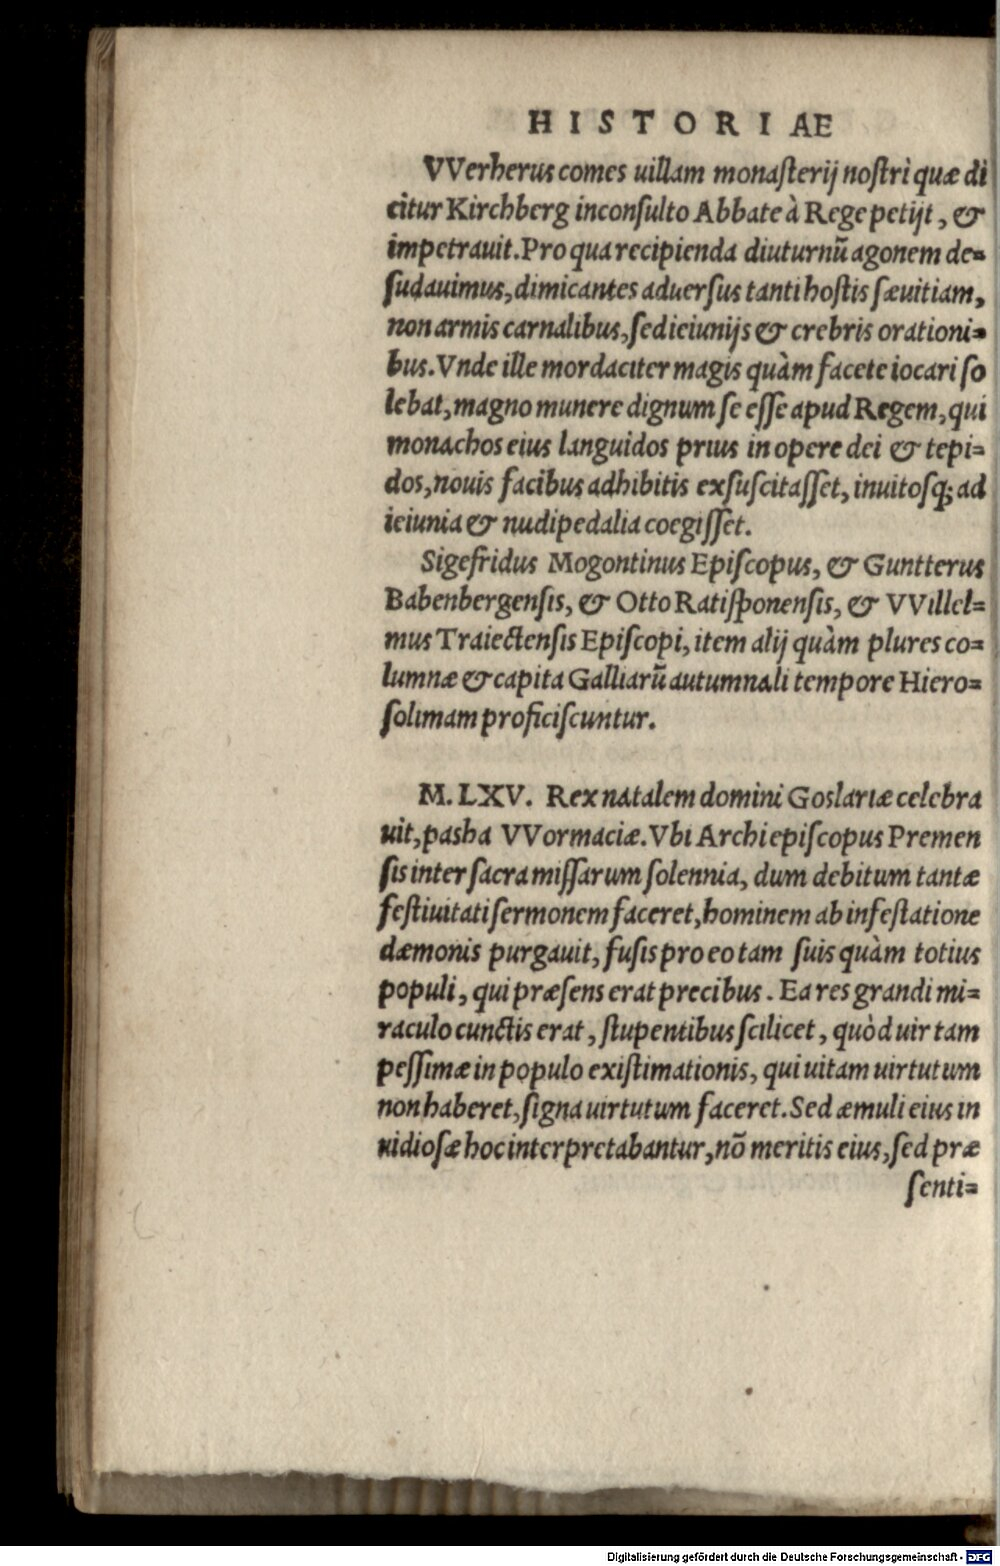 HISTORIAE
VVerherus comes uillam monaſterij noſtri quæ di
citur Kirchberg inconſulto Abbate à Rege petijt, &
impetrauit. Pro qua recipienda diuturnū agonem de=
ſudauimus, dimicantes aduerſus tanti hoſtis ſæuitiam,
non armis carnalibus, ſed ieiunijs & crebris orationi=
bus. Vnde ille mordaciter magis quàm facete iocari ſo
lebat, magno munere dignum ſe eſſe apud Regem, qui
monachos eius languidos prius in opere dei & tepi=
dos, nouis facibus adhibitis exſuſcitaſſet, inuitoſq; ad
ieiunia & nudipedalia coegiſſet.
Sigefridus Mogontinus Epiſcopus, & Guntterus
Babenbergenſis, & Otto Ratiſponenſis, & VVillel=
mus Traiectenſis Epiſcopi, item alij quàm plures co=
lumnæ & capita Galliarū autumnali tempore Hiero=
ſolimam proficiſcuntur.
M. LXV. Rex natalem domini Goslariæ celebra
uit, pasha VVormaciæ. Vbi Archiepiſcopus Premen
ſis inter ſacra miſſarum ſolennia, dum debitum tantæ
feſtiuitati ſermonem faceret, hominem ab infeſtatione
dæmonis purgauit, fuſis pro eo tam ſuis quàm totius
populi, qui præſens erat precibus. Ea res grandi mi=
raculo cunctis erat, ſtupentibus ſcilicet, quòd uir tam
peſſimæ in populo exiſtimationis, qui uitam uirtutum
non haberet, ſigna uirtutum faceret. Sed æmuli eius in
uidioſæ hoc interpretabantur, nō meritis eius, ſed præ
ſenti=
Digitalisierung gefördert durch die Deutsche Forschungsgemeinschaft - DFG